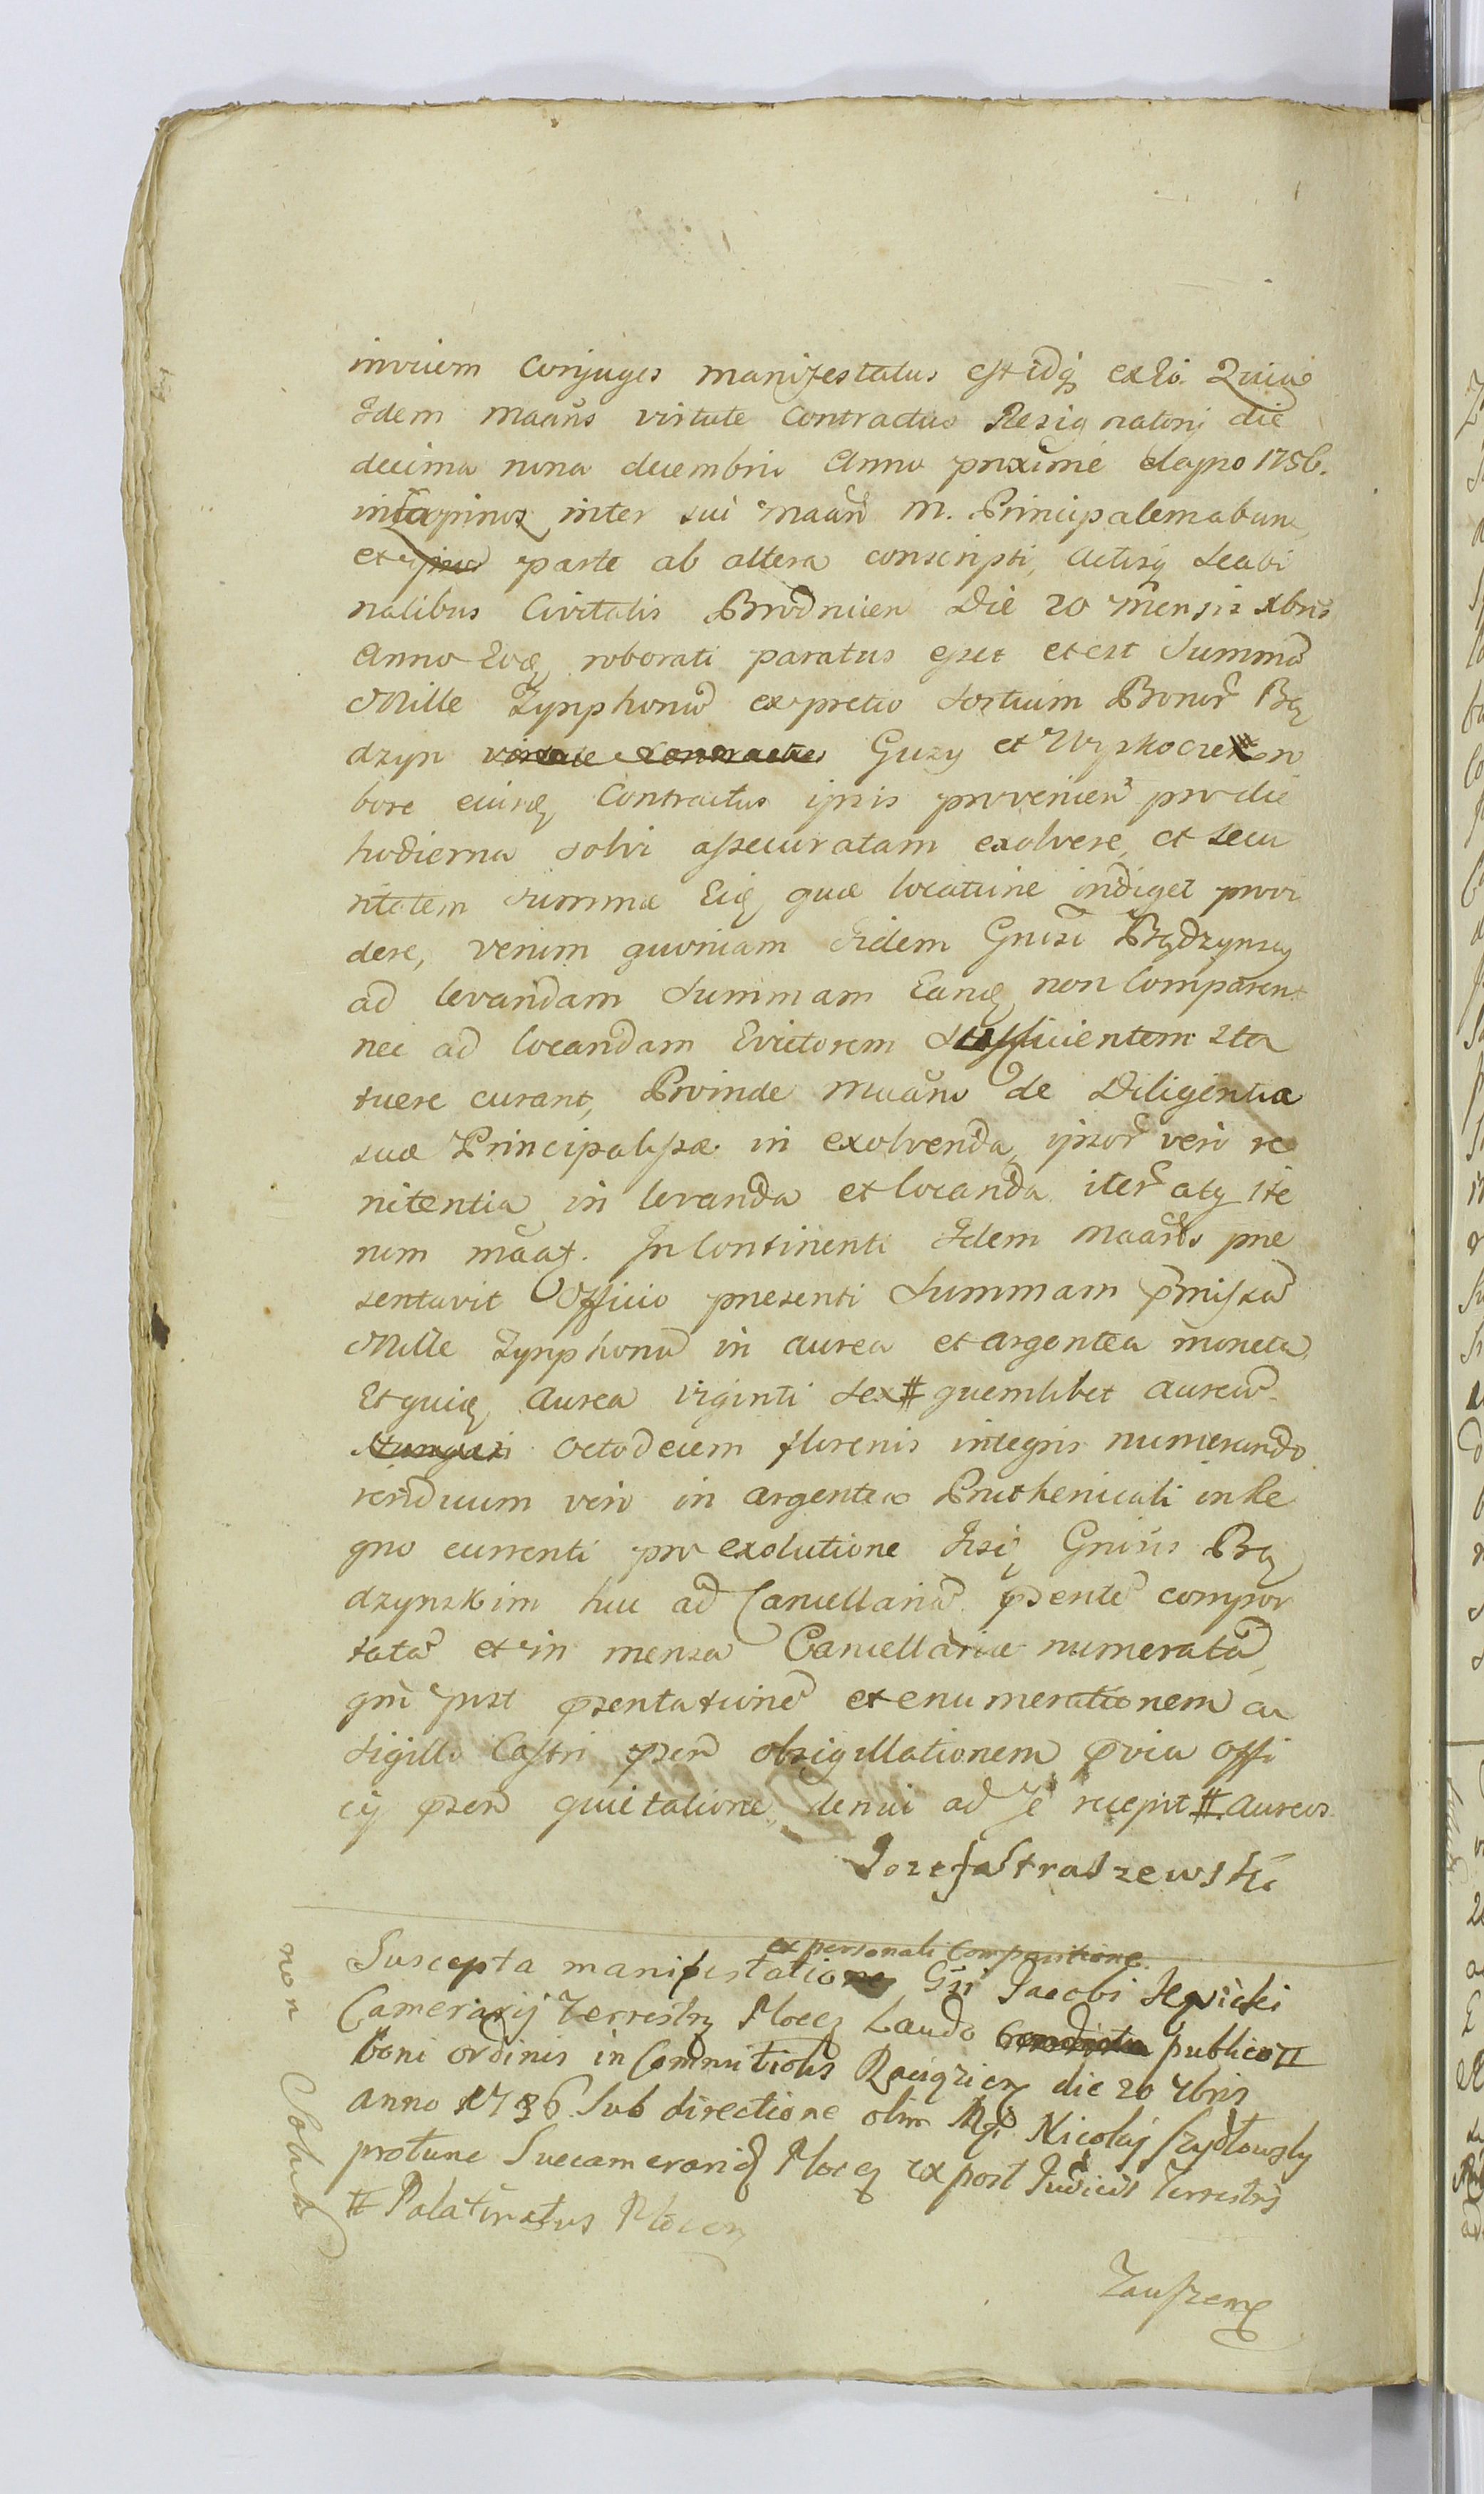 invicem Conjuges manifestatus est idq exEo. Quia
Idem maāns virtute Contractus Resignatorij die
decima nona decembris Anno proximè elapso 1756.
inter sui maāñ m. Principalem ab una
et parte ab altera conscripti, Actisq Scabi
nalibus Civitatis Brodnicen Die 20 mensis Xbris
Anno Eoq roborati paratus esset et est Summã
Mille Tynphonũ ex pretio Sortium Bonor̃ Bą
dzyn virtute Contractus Guzy et Wyskocze n
bore eiusq Contractus ipsis provenieñ pro die
hodierna solvi assecuratam exolvere, et secu
ritatem Summæ Eiq quæ locatione indiget provi
dere, verum quoniam Iidem Gnisi Bądzynsсy
ad levandam Summam Eanq non Comparent
nec ad locandam Evictorem Sufficientem sta
tuere curant, Proinde Maāns de Diligentia
suæ Principalissæ in exolvenda, ipsor̃ verò re
nitentia in levanda et locanda iter̃ atq ite
rum māat. In Continenti Idem Maāns præ
sentavit Officio presenti Summam p̃missã
Mille Tynphonũ in aurea et argentea moneta,
Et quiq aurea viginti Sex # quemlibet aureũ
Hungari octodecim florenis integris numerando
residuum verò in argentea Pruthenicali in Re
gno currenti pro exolutione Iisq Gnisis Bą
dzynskim huc ad Cancellariã p̃sentẽ compor
tatã et in mensa Cancellariæ numeratã,
qm̃ post p̃sentationẽ et enumerationem ac
Sigillo Castri p̃señ obsigillationem p̃via offi
cij p̃señ quietatione, denuò ad se recepit # aureos
Jozef Straszewski
ex personali Comparitione
Suscepta manifestatione Gsi Jacobi
Camerarij Terrestrz Plocen Laudo Conditu publico #
boni ordinis in Commitiolis Raciązien die 20 7bris
anno 1736 Sub directione olim Mgi Nicolaj Szydłowsky
protunc Succamerarij Plocen ex post Judicis Terrestris
# Palatinatus Plocen
non Solut